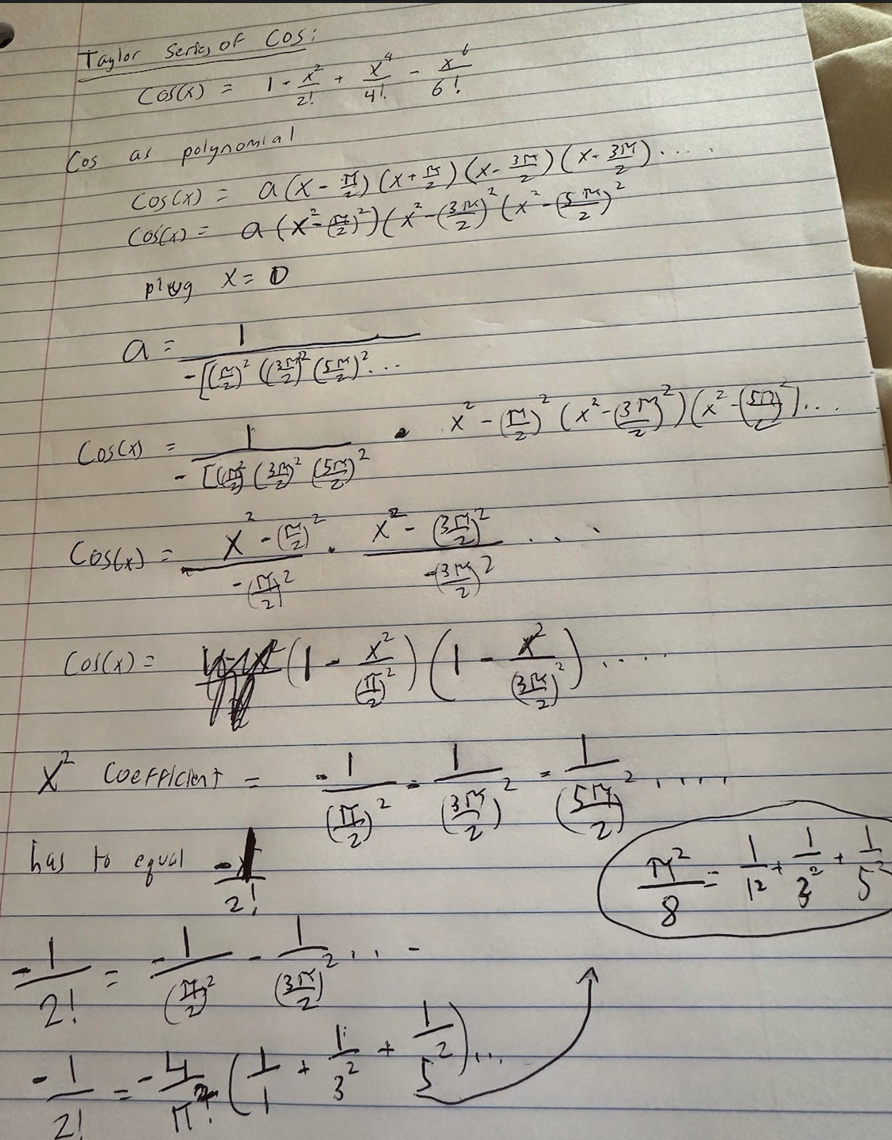 Taylor Series of Cos:
Cos(x) = 1 - x²/2! + x⁴/4! - x⁶/6!
Cos as polynomial
Cos(x) = a(x - π/2)(x + π/2)(x - 3π/2)(x - 3π/2)....
Cos(x) = a(x² - (π/2)²)(x² - (3π/2)²(x² - (5π/2)²
plug x = 0
a = 1/-[(π/2)² ((3π/2)² (5π/2)²...
Cos(x) = 1/-[(π/2)² (3π/2)² (5π/2)² · x² - (π/2)² (x² - (3π/2)²)(x² - (5π/2)²)...
Cos(x) = x² - (π/2)²/-(π/2)² · x² - (3π/2)²/-(3π/2)² ....
Cos(x) = (1 - x²/(π/2)²)(1 - x²/(3π/2)²).....
x² Coefficient = -1/(π/2)² - 1/(3π/2)² - 1/(5π/2)² ....
has to equal -1/2!
π²/8 = 1/1² + 1/3² + 1/5²
-1/2! = -1/(π/2)² - 1/(3π/2)² ... -
-1/2! = -4/π² (1/1 + 1/3² + 1/5²)...